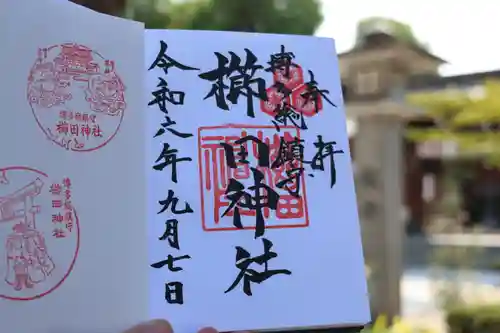 奉拝
博多総鎮守
櫛田神社
令和六年九月七日
博多総鎮守
櫛田神社
博多総鎮守
櫛田神社